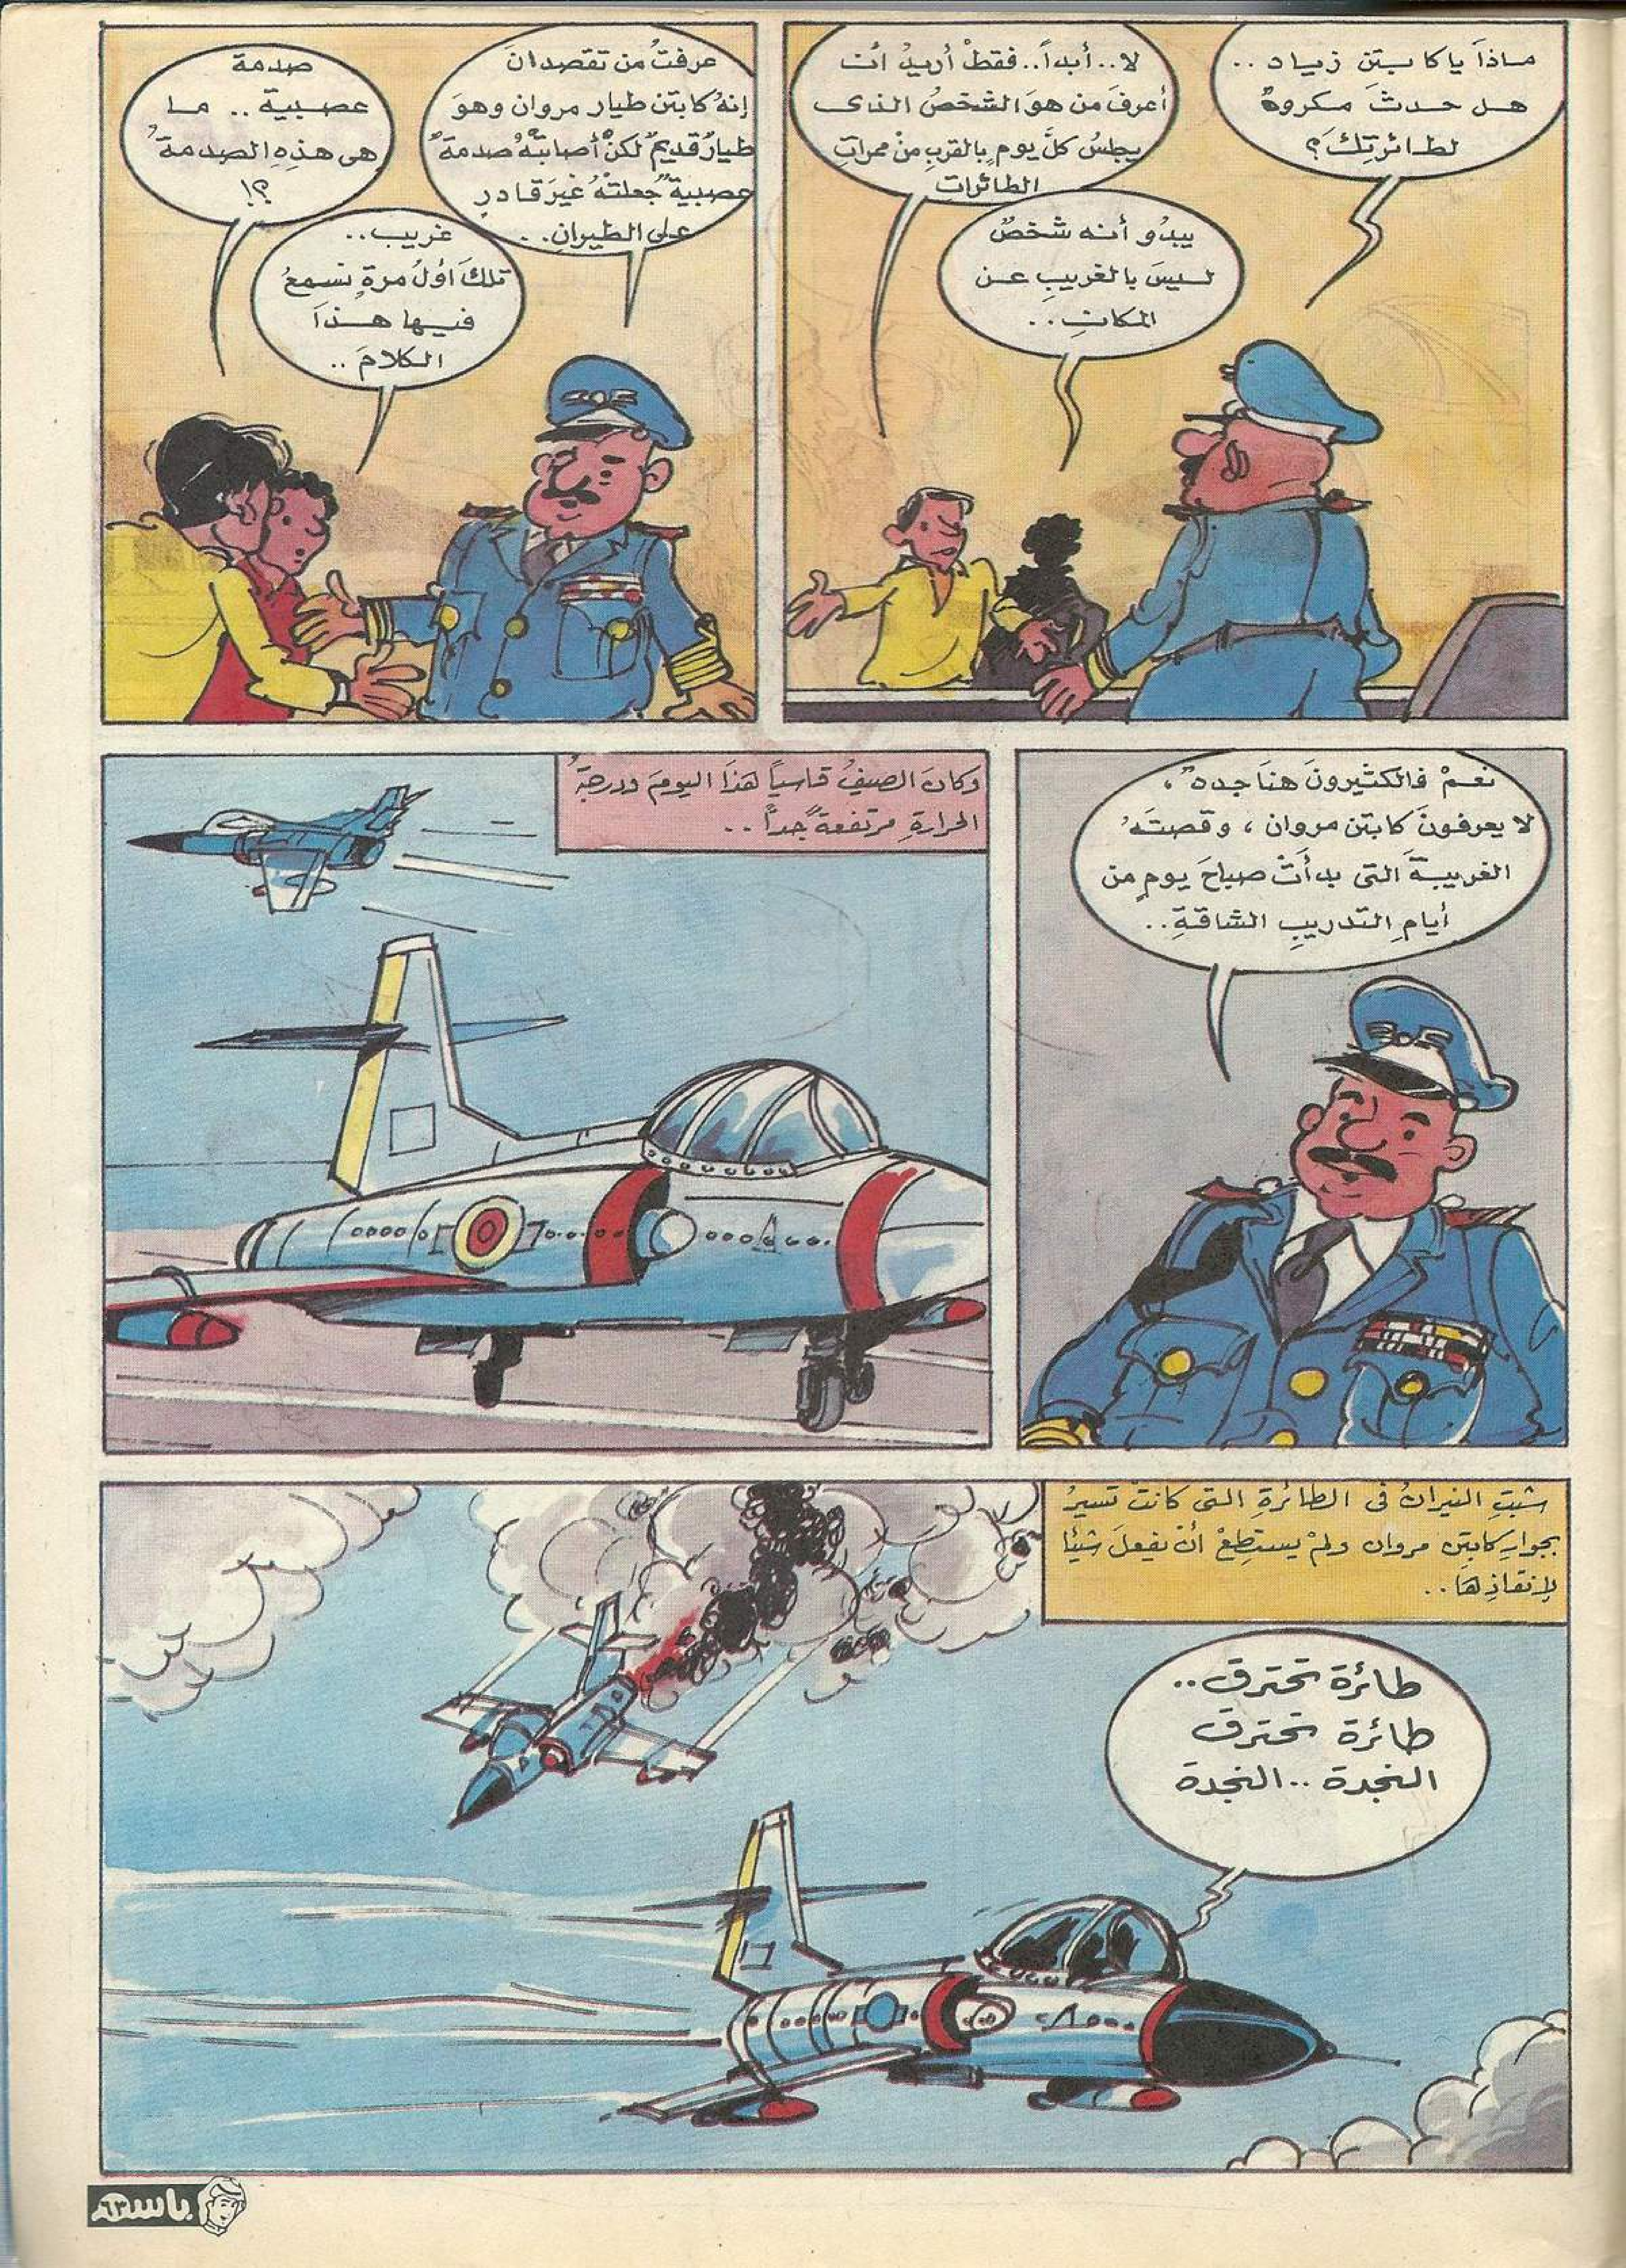 ماذا يا كابتن زياد ..
هل حدثَ مكروهٌ
لطائرتِكَ؟
لا.. أبداً.. فقطْ أريدُ أن
أعرفَ من هوَ الشخصُ الذى
يجلسُ كلَّ يومٍ بالقربِ منْ ممراتِ
الطائراتِ
يبدُو أنه شخصٌ
ليسَ بالغريبِ عن
المكانِ ..
عرفتُ من تقصدانَ
إنهُ كابتن طيار مروان وهوَ
طيارٌ قديمٌ لكنْ أصابتْهُ صدمةٌ
عصبيةٌ جعلتْهُ غيرَ قادرٍ
على الطيرانِ ..
صدمة
عصبية .. ما
هى هذِهِ الصدمةُ
؟!
غريب ..
تلكَ أولُ مرةٍ نسمعُ
فيها هذا
الكلامَ ..
نعمْ فالكثيرونَ هنا جددٌ ،
لا يعرفونَ كابتن مروان ، وقصتَهُ
الغريبةَ التى بدأتْ صباحَ يومٍ من
أيامِ التدريبِ الشاقةِ ..
وكانَ الصيفُ قاسياً هذا اليومَ ودرجةُ
الحرارةِ مرتفعةً جداً ..
شبتِ النيرانُ فى الطائرةِ التى كانتْ تسيرُ
بجوارِ كابتن مروان ولمْ يستطِعْ أنْ يفعلَ شيئا
لإنقاذِها ..
طائرة تحترق ..
طائرة تحترق
النجدة .. النجدة
باسم
٦٣